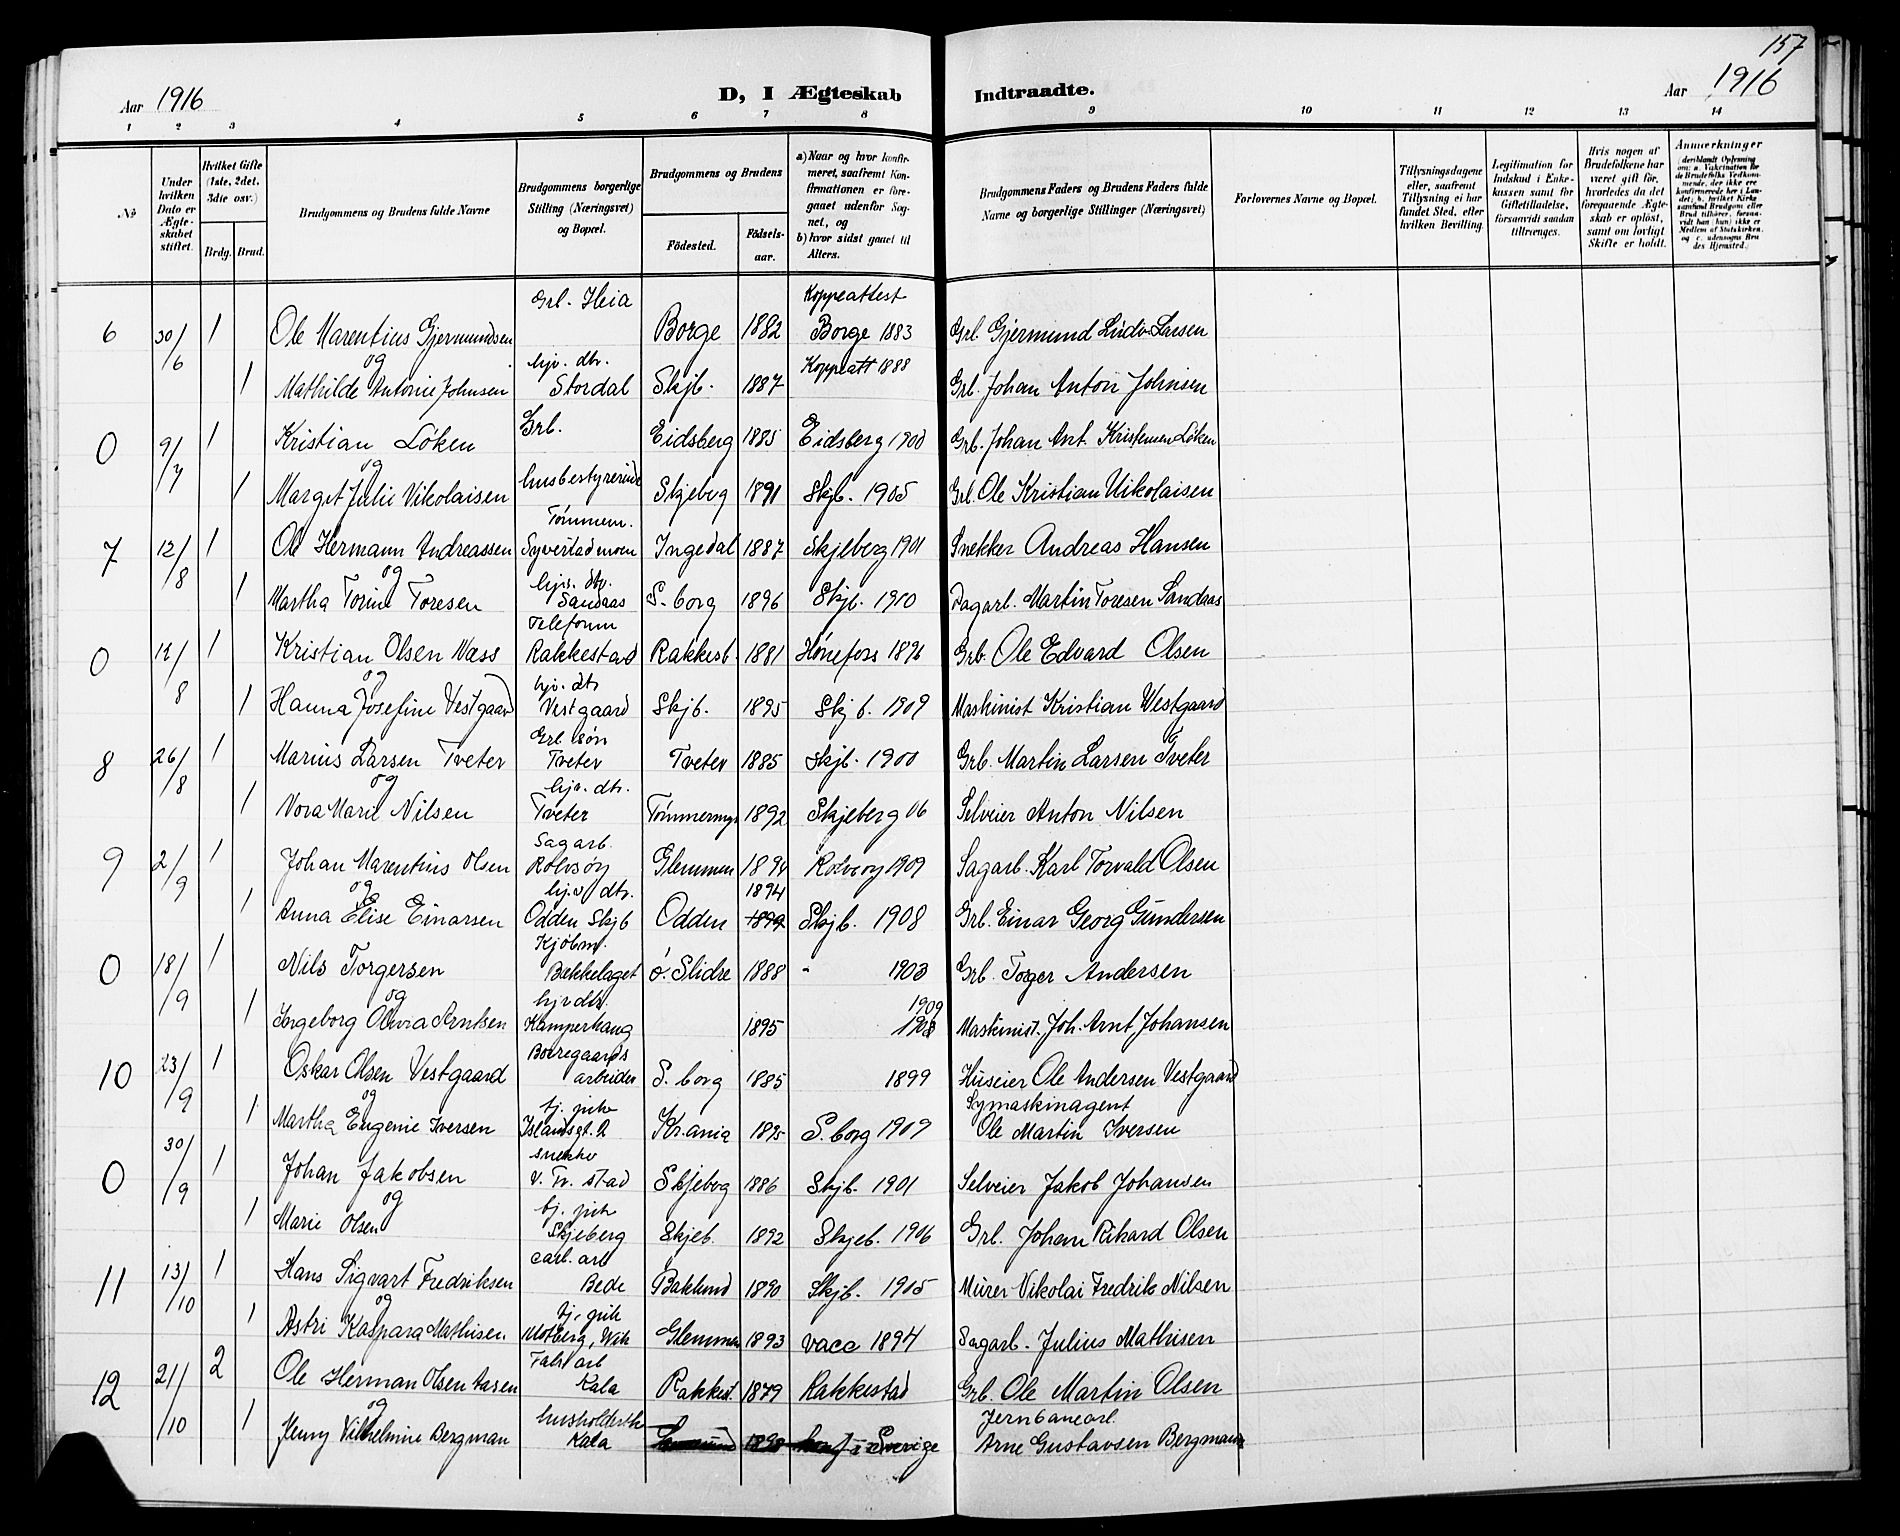 157
Aar 1916
D, I Ægteskab Indtraadte.
Aar 1916
1 2 3 4 5 6 7 8 9 10 11 12 13 14
№
Under hvilken Dato er Ægteskabet stiftet.
Hvilket Gifte (1ste, 2det, 3die osv.)
Brdg. Brud.
Brudgommens og Brudens fulde Navne
Brudgommens borgerlige Stilling (Næringsvei) og Bopæl.
Brudgommens og Brudens
Fødested. Fødselsaar.
a) Naar og hvor konfirmeret, saafremt Konfirmationen er foregaaet udenfor Sognet, og
b) hvor sidst gaaet til Alters.
Brudgommens Faders og Brudens Faders fulde Navne og borgerlige Stillinger (Næringsvei)
Forlovernes Navne og Bopæl.
Tillysningsdagene eller, saafremt Tillysning ei har fundet Sted, efter hvilken Bevilling.
Legitimation for Indskud i Enkekassen samt for Giftetilladelse, forsaavidt saadan tiltrænges.
Hvis nogen af Brudefolkene har været gift før, hvorledes da det foregaaende Ægteskab er opløst, samt om lovligt Skifte er holdt.
Anmerkninger
Grb. Heia Koppeattest
6 30/6 1 Ole Marentius Gjermundsen Borge 1882 Borge 1883 Grb. Gjermund Ludv. Larsen
og hjv. dtr. Koppeatt 1888
1 Mathilde Antonie Johnsen Stordal Skjb. 1887 Grb. Johan Anton Johnsen
0 9/7 1 Kristian Løken Grb. Eidsberg 1885 Eidsberg 1900 Grb. Johan Ant. Kristensen Løken
og
1 Marget Julie Nikolaisen Skjeberg 1891 Skjb. 1905 Grb. Ole Kristian Nikolaisen
Tømmerm.
7 12/8 1 Ole Hermann Andreassen Syverstadmoen Ingedal 1887 Skjeberg 1901 Snekker Andreas Hansen
og hjv. dtr.
1 Martha Torine Toresen Sandaas S-borg 1896 Skjb. 1910 Dagarb. Martin Toresen Sandaas
0 12/8 1 Kristian Olsen Næss Rakkestad Rakkest. 1881 Hønefoss 1896 Grb. Ole Edvard Olsen
og hjv. dtr
1 Hanna Josefine Vestgaard Vestgaard Skjb. 1895 Skjb. 1909 Maskinist Kristian Westgaard
Grb. søn
8 26/8 1 Marius Larsen Tveter Tveter Tveter 1885 Skjb. 1900 Grb. Martin Larsen Tveter
og hjv. dtr.
1 Nora Marie Nilsen Tveter 1892 Skjeberg 06 Selveier Anton Nilsen
Sagarb.
9 2/9 1 Johan Marentius Olsen Rolvsøy Glemmen 1894 Rolvsøy 1909 Sagarb. Karl Torvald Olsen
og hjv. dtr. 1894
1 Anna Elise Einarsen Odden Skjb Odden Skjb. 1908 Grb. Einar Georg Gundersen
Kjøbm.
0 18/9 1 Nils Torgersen Bækkelaget ø. Slidre 1888 " 1903 Grb. Torger Andersen
og hjv dtr. 1909
1 Ingeborg Olivia Arntsen Kamperhaug 1895 1908 Maskinist. Joh. Arnt Johansen
Borregaards
10 23/9 1 Oskar Olsen Vestgaard arbeider S. borg 1885 1899 Huseier Ole Andersen Vestgaard
og tj. pike Symaskinagent
1 Martha Eugenie Iversen Islandsgt. 2 Kr.ania 1895 S. borg 1909 Ole Martin Iversen
0 30/9 1 Johan Jakobsen Skjeberg 1886 Skjb. 1901 Selveier Jakob Johansen
og tj. pike
1 Marie Olsen Skjeberg Skjeb. 1892 Skjeb. 1906 Grb. Johan Rikard Olsen
11 13/10 1 Hans Sigvart Fredriksen Bede Baklund 1890 Skjb. 1905 Murer Nikolai Fredrik Nilsen
og tj. pike
1 Astri Kaspara Mathisen Glemmen 1893 vacc 1894 Sagarb. Julius Mathisen
Fabr arb
12 21/10 2 Ole Herman Olsen Aasen Kala Rakkest. 1879 Rakkestad Grb. Ole Martin Olsen
og Jernbanearb.
1 Jenny Vilhelmine Bergman Kala 1898 Sverige Arne Gustavsen Bergmann